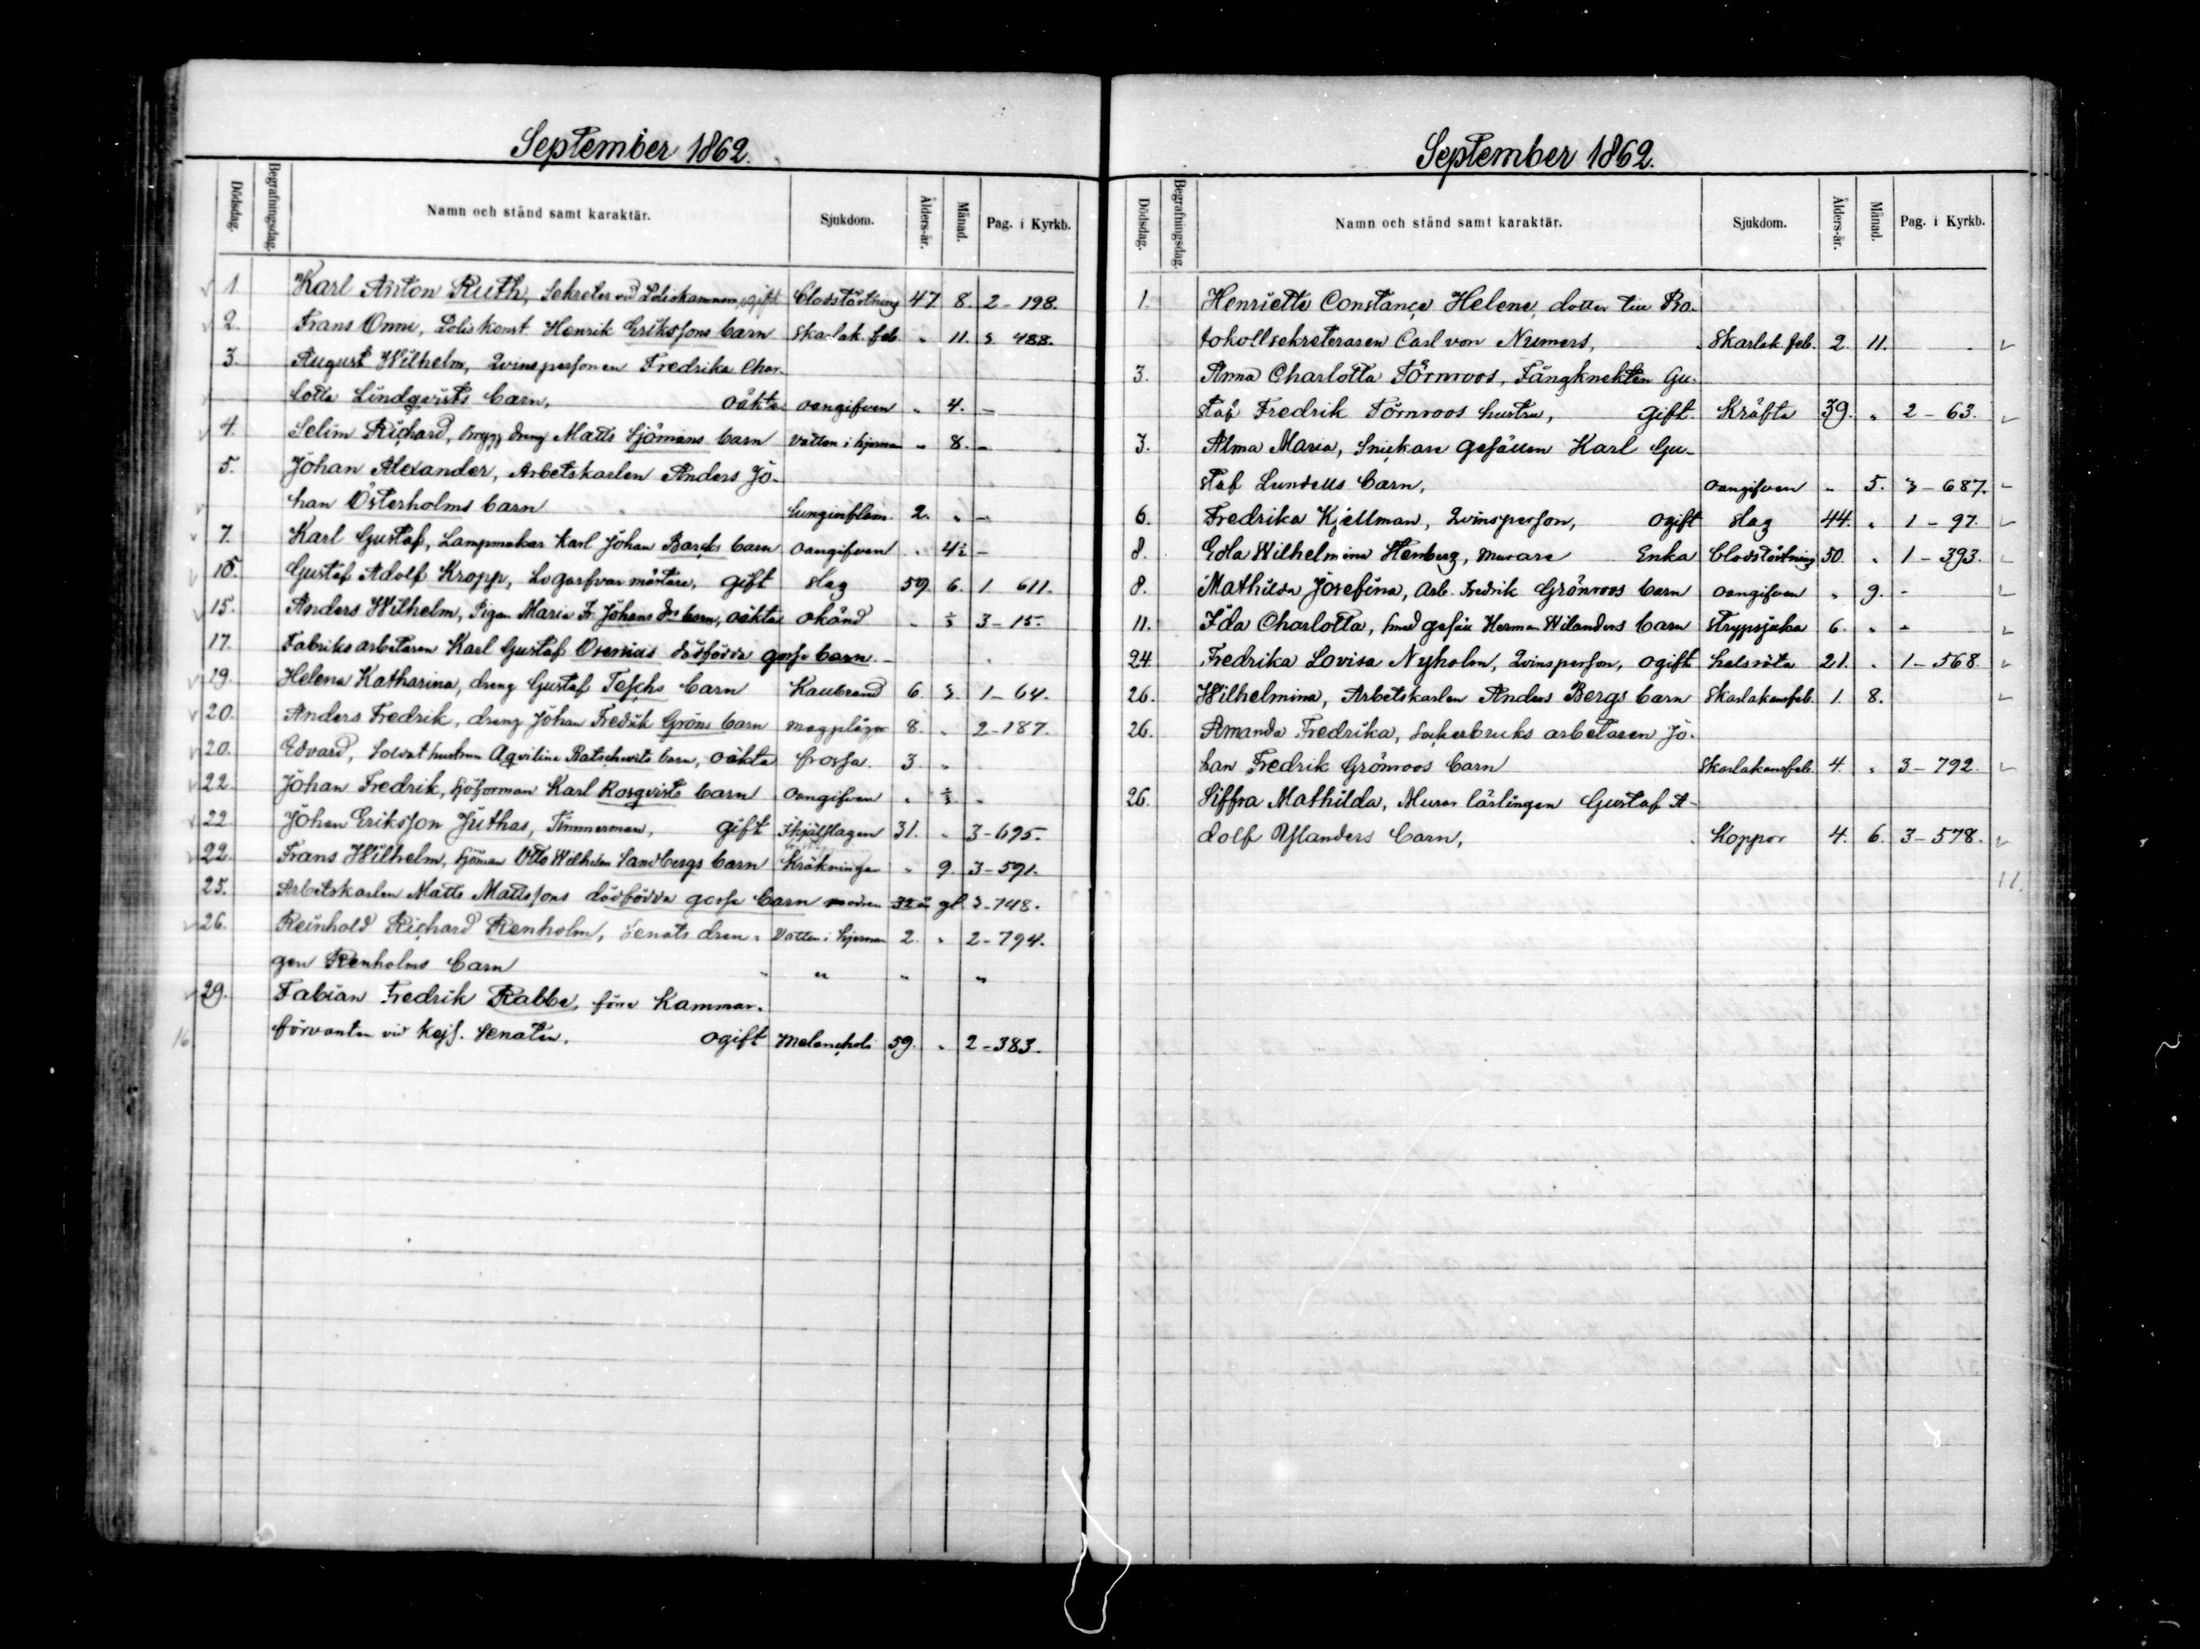 September 1862.
Dödsdag. Begrafningsdag. Namn och stånd samt karaktär. Sjukdom. Ålders-år. Månad. Pag. i Kyrkb.
1. Karl Anton Ruth, Sekreter vid Poliskammaren, ogift Blodstörtning 47 8. 2-198.
2. Frans Onni, Poliskonst. Henrik Erikssons barn Skarlak. feb. " 11. 3. 488.
3. August Wilhelm, Qvinspersonen Fredrika Char-
lotta Lindqvists barn, oäkta oangifven " 4. -
4. Selim Richard, brygg dreng Matts Sjömans barn vatten i hjernan " 8. -
5. Johan Alexander, Arbetskarlen Anders Jo-
han Österholms barn lunginflam. 2. " -
7. Karl Gustaf, Lampmakar Karl Johan Barcks barn oangifven " 4½ -
10. Gustaf Adolf Kropp, Logarfvar mästare, gift slag 59. 6. 1 611.
15. Anders Wilhelm, Pigan Maria Fr. Johans drs barn, oäkta okänd " ½ 3-15.
17. Fabriksarbetaren Karl Gustaf Osenius dödfödda gosse barn. -
19. Helena Katharina, dreng Gustaf Teschs barn Kallbrand 6. 3. 1-64.
20. Anders Fredrik, dreng Johan Fredrik Gröns barn magplågor 8. " 2-187.
20. Edvard, Soldat hustrun Aqvilina Ratschewits barn, oäkta frossa. 3. "
22. Johan Fredrik, Kofforman Karl Rosqvists barn oangifven " ½ -
22. Johan Eriksson Juthas, Timmerman, gift ihjälslagen 31. " 3-695.
22. Frans Wilhelm, Sjöman Otto Wilhelm Sandbergs barn Kräkningar " 9. 3-591.
25. Arbetskarlen Matts Mattssons dödfödda gosse barn modren 32 å gl. 3-748.
26. Reinhold Richard Renholm, Senats dren- Vatten i hjernan 2. " 2-794.
gen Renholms barn " " " "
29. Fabian Fredrik Rabbe, förre Kammar-
16 förvanten vid Kejs. Senaten, ogift Melancholi 59. " 2-383.
September 1862.
Dödsdag. Begrafningsdag. Namn och stånd samt karaktär. Sjukdom. Ålders-år. Månad. Pag. i Kyrkb.
1. Henriette Constance Helene, dotter till Pro-
tokollsekreteraren Carl von Numers, Skarlak. feb. 2. 11.
3. Anna Charlotta Törnroos, Fångknekten Gu-
staf Fredrik Törnroos hustru, gift. Kräfta 39. " 2-63.
3. Alma Maria, Snickare gesällen Karl Gu-
staf Lundells barn, oangifven " 5. 3-687.
6. Fredrika Kjellman, Qvinsperson, ogift slag 44. " 1-97.
8. Eda Wilhelmina Stenberg, Murare Enka Blodstörtning 50. " 1-393.
8. Mathilda Josefina, Arb. Fredrik Grönroos barn oangifven " 9. -
11. Ida Charlotta, smed gesäll Herman Wilanders barn strypsjuka 6. " -
24. Fredrika Lovisa Nyholm, Qvinsperson, ogift halsröta 21. " 1-568.
26. Wilhelmina, Arbetskarlen Anders Bergs barn Skarlakansfeb. 1. 8.
26. Amanda Fredrika, Sockerbruks arbetaren Jo-
han Fredrik Grönroos barn Skarlakansfeb. 4. " 3-792.
26. Siffra Mathilda, Murar lärlingen Gustaf A-
dolf Uslanders barn, Koppor 4. 6. 3-578.
11.